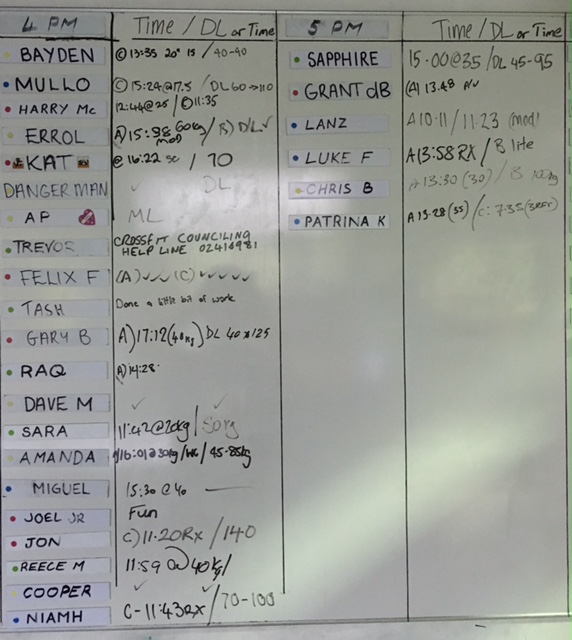 4 PM Time / DL or Time
BAYDEN © 13:35 20" 15 / 40-40
MULLO © 15:24@17.5 / DL 60→110
HARRY Mc 12:44@25 / © 11:35
ERROL A) 15:38 60kg / B) D/L ✓
MOD
KAT @ 16:22 sc / 70
DANGERMAN ✓ DL
AP ML
TREVOR CROSSFIT COUNCILING
HELP LINE 02414981
FELIX F (A) ✓✓✓ (C) ✓✓✓✓✓
TASH Done a little bit of work
GARY B A) 17:12 (40kg) DL 40 x 125
RAQ (A) 14:28
DAVE M ✓ ✓
SARA 11:42@20kg / 50kg
AMANDA 16:01@30kg / / 45-85kg
MIGUEL 15:30 @ 40 —
JOEL JR Fun
JON C) 11.20Rx / 140
REECE M 11:59 @ 40kg /
COOPER ✓ ✓
NIAMH C-11:43Rx / 70-100
5 PM Time / DL or Time
SAPPHIRE 15.00@35 / DL 45-95
GRANT dB (A) 13.48
LANZ A 10:11 / 11:23 (mod)
LUKE F A 13:58 RX / B lite
CHRIS B A 13:30 (30) / B
PATRINA K A 13.28 (35) / C: 7:35